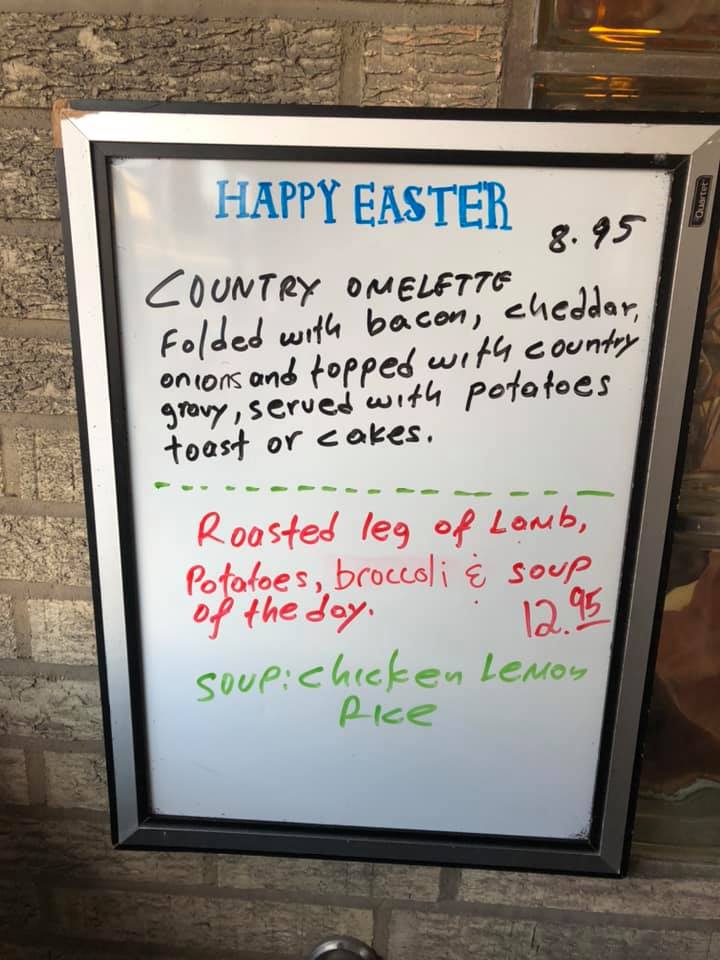 Quartet
HAPPY EASTER
8.95
COUNTRY OMELETTE
Folded with bacon, cheddar,
onions and topped with country
gravy, served with potatoes
toast or cakes.
Roasted leg of Lamb,
Potatoes, broccoli & soup
of the day. 12.95
soup: chicken Lemon
Rice